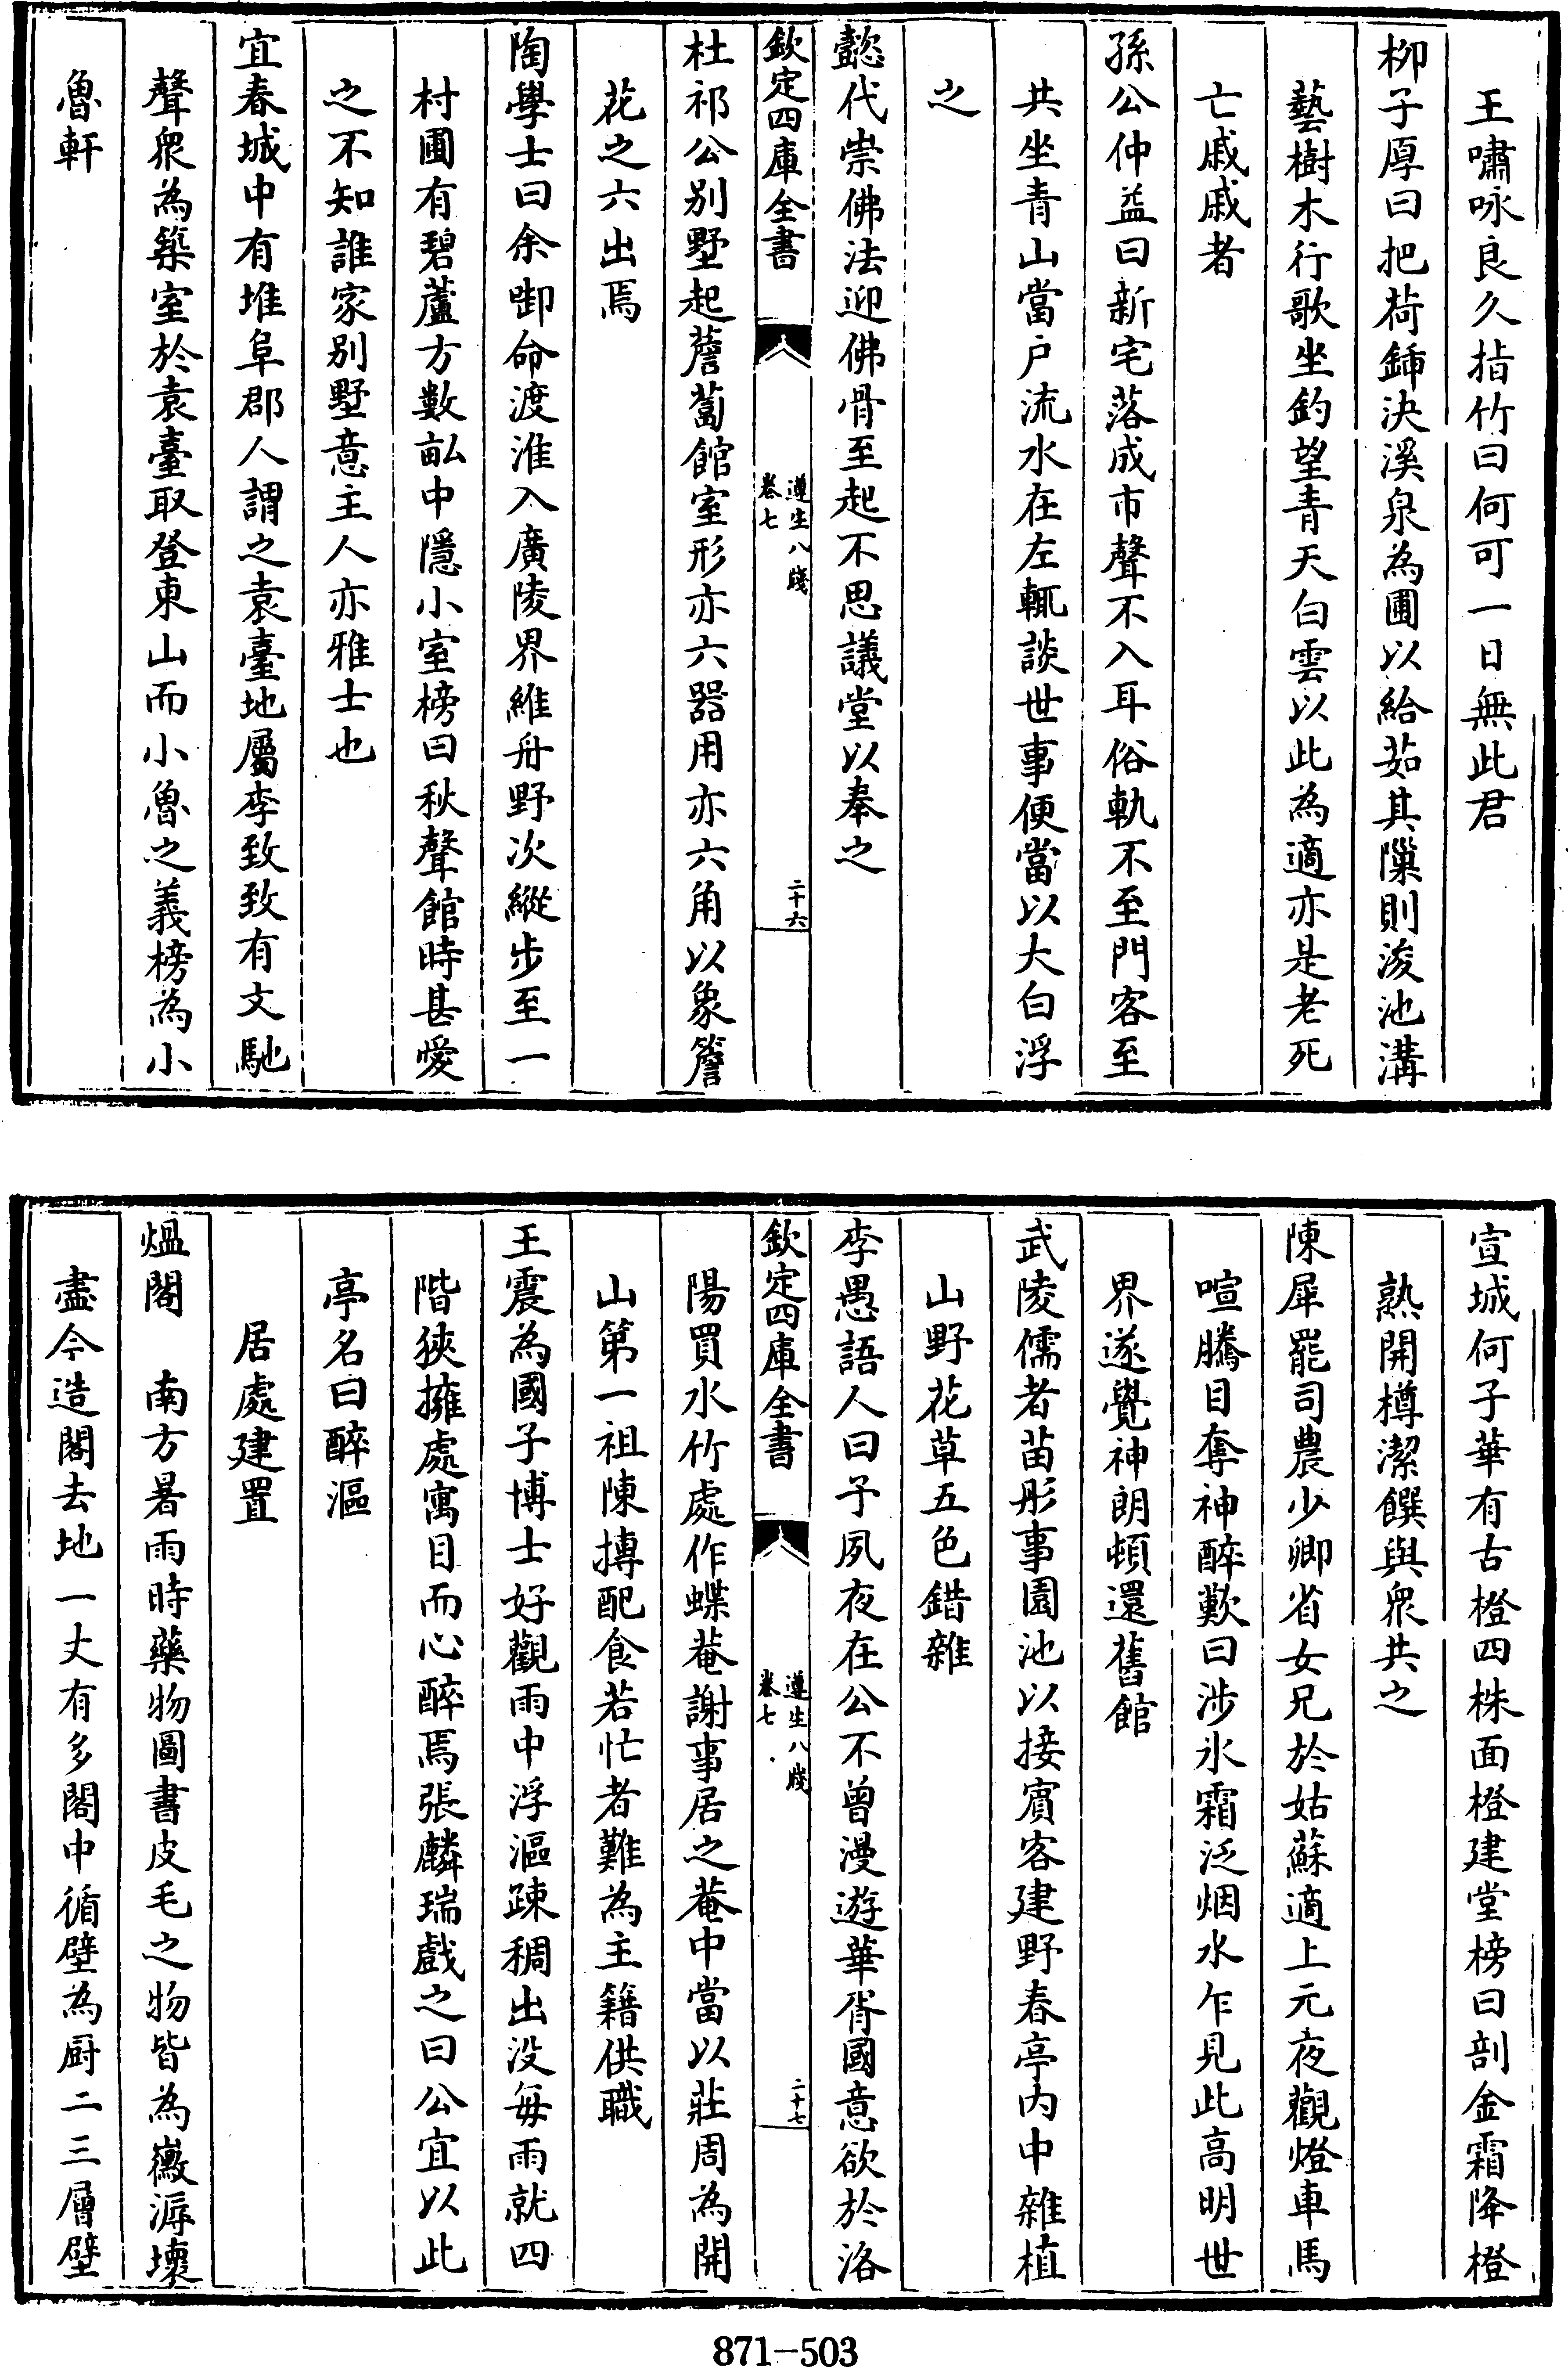 王嘯咏良久指竹曰何可一日無此君
栁子厚曰把荷鍤決溪泉為圃以給茹其隟則浚池溝
藝樹木行歌坐釣望青天白雲以此為適亦是老死
亡戚戚者
孫公仲益曰新宅落成市聲不入耳俗軌不至門客至
共坐青山當户流水在左輒談世事便當以大白浮
之
懿代崇佛法迎佛骨至起不思議堂以奉之
欽定四庫全書
遵生八牋
卷七
二十六
杜祁公别墅起薝蔔館室形亦六器用亦六角以象簷
花之六出焉
陶學士曰余啣命渡淮入廣陵界維舟野次縱步至一
村圃有碧蘆方數畆中隱小室榜曰秋聲館時甚愛
之不知誰家别墅意主人亦雅士也
宜春城中有堆阜郡人謂之袁臺地屬李致致有文馳
聲衆為築室於袁臺取登東山而小魯之義榜為小
魯軒
宣城何子華有古橙四株面橙建堂榜曰剖金霜降橙
熟開樽潔饌與衆共之
陳犀罷司農少卿省女兄於姑蘇適上元夜觀燈車馬
喧騰目奪神醉歎曰涉氷霜泛烟水乍見此高明世
界遂覺神朗頓還舊館
武陵儒者苗彤事園池以接賓客建野春亭内中雜植
山野花草五色錯雜
李愚語人曰予夙夜在公不曾漫遊華胥國意欲於洛
欽定四庫全書
遵生八牋
卷七
二十七
陽買水竹處作蝶菴謝事居之菴中當以莊周為開
山第一祖陳摶配食若忙者難為主籍供職
王震為國子博士好觀雨中浮漚踈稠出没毎雨就四
階狹擁處寓目而心醉焉張麟瑞戲之曰公宜以此
亭名曰醉漚
居處建置
熅閣　南方暑雨時藥物圖書皮毛之物皆為黴溽壞
盡今造閣去地一丈有多閣中循壁為厨二三層壁
871—503